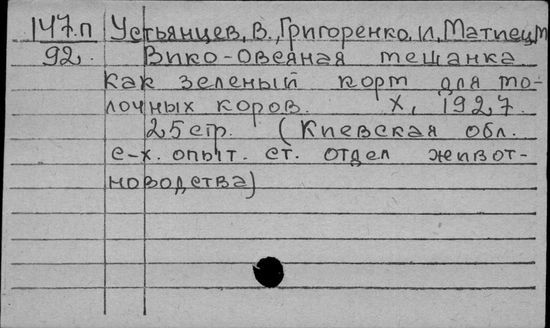 147.п Устьянцев, В., Григоренко, И, Матиец, М
92. Вико-овсяная мешанка
как зеленый корт для мо-
лочных коров. X, 1927.
25стр. (Киевская обл.
с-х. опыт. ст. отдел живот-
новодства)